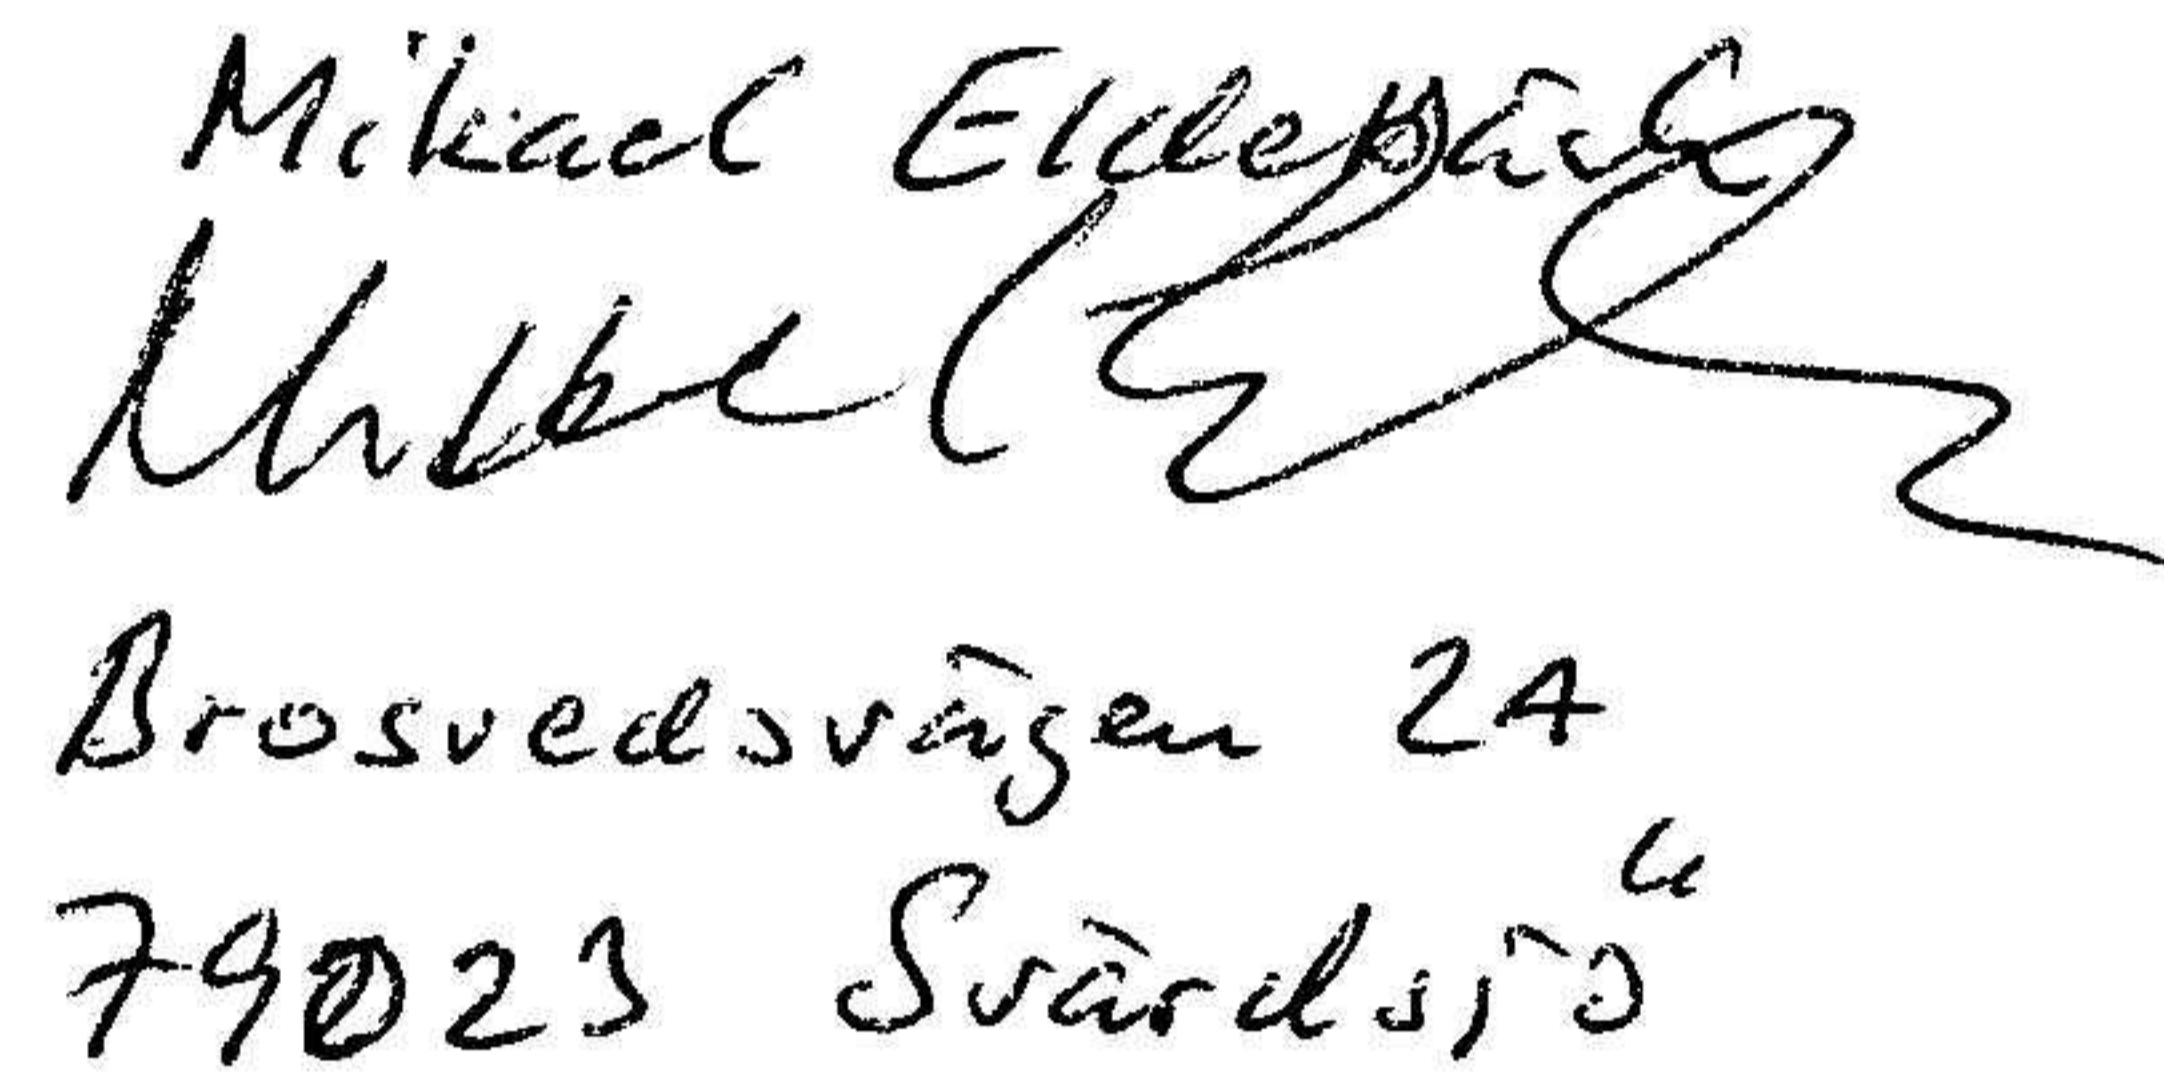 Mikael Eldebäck
Brosvedsvägen 24
79023 Svärdsjö